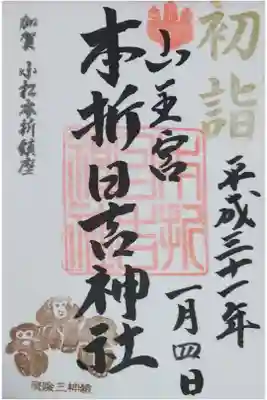 初詣
平成三十一年
一月四日
山王宮
本折日吉神社
加賀 小松本折鎮座